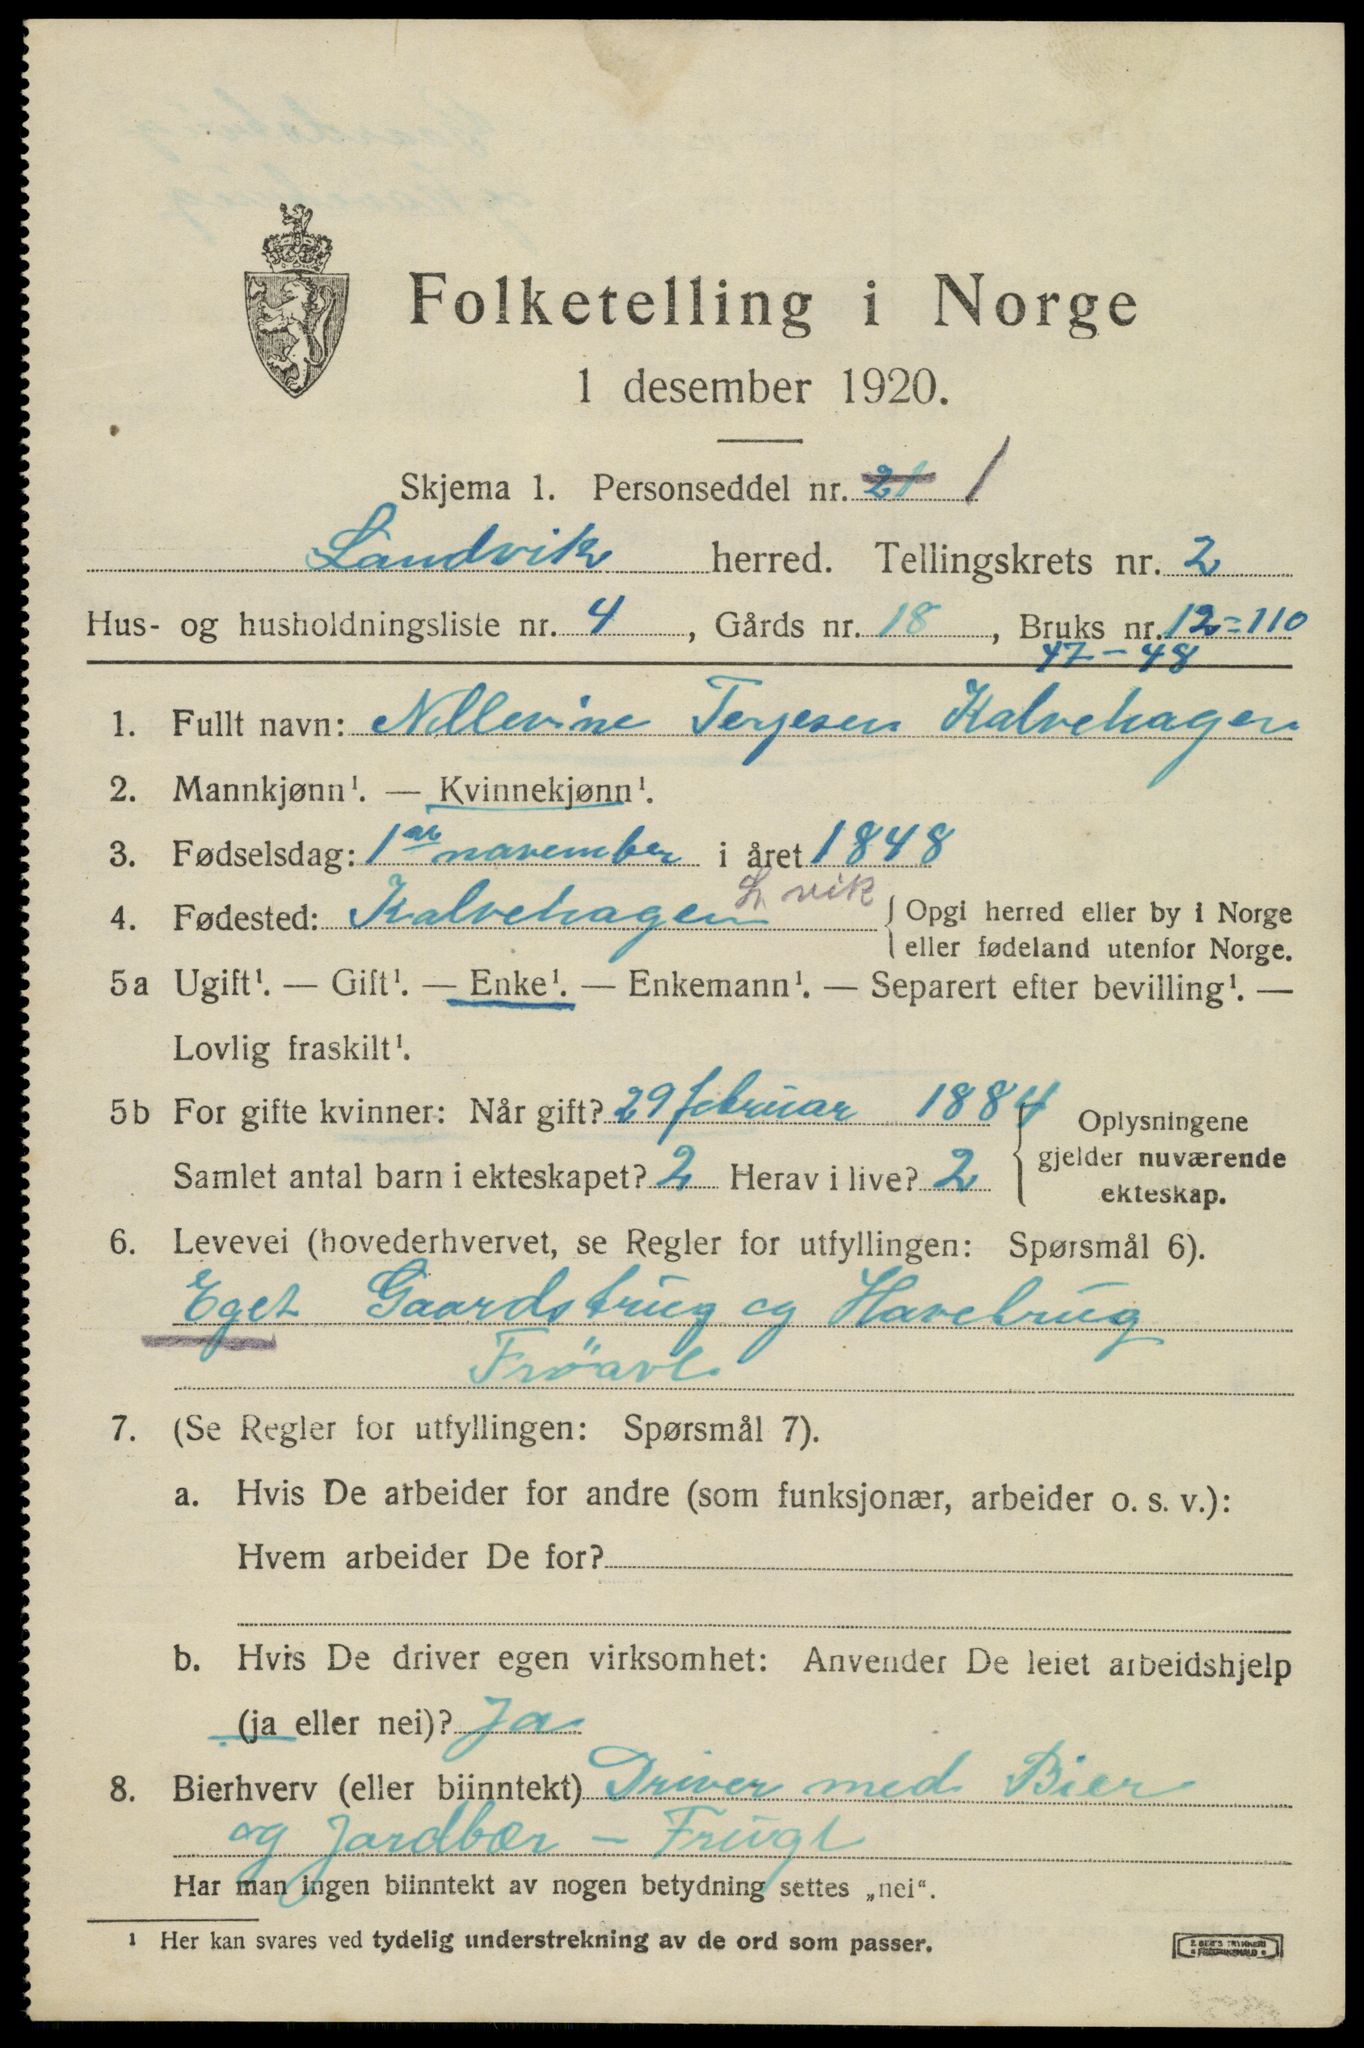 Folketelling i Norge
1 desember 1920.
Skjema 1. Personseddel nr. 21 1
Landvik herred. Tellingskrets nr. 2
Hus- og husholdningsliste nr. 4, Gårds nr. 18, Bruks nr. 12=110
47-48
1. Fullt navn: Nillevine Terjesen Kalvehagen
2. Mannkjønn¹. — Kvinnekjønn¹.
3. Fødselsdag: 1 november i året 1848
L. vik
4. Fødested: Kalvehagen { Opgi herred eller by i Norge
eller fødeland utenfor Norge.
5a Ugift¹. — Gift¹. — Enke¹. — Enkemann¹. — Separert efter bevilling¹. —
Lovlig fraskilt¹.
5b For gifte kvinner: Når gift? 29 februar 1884 { Oplysningene
gjelder nuværende
Samlet antal barn i ekteskapet? 2 Herav i live? 2
ekteskap.
6. Levevei (hovederhvervet, se Regler for utfyllingen: Spørsmål 6).
Eget Gaardsbrug og Havebrug
Fröavl
7. (Se Regler for utfyllingen: Spørsmål 7).
a. Hvis De arbeider for andre (som funksjonær, arbeider o. s. v.):
Hvem arbeider De for?
b. Hvis De driver egen virksomhet: Anvender De leiet arbeidshjelp
(ja eller nei)? Ja
8. Bierhverv (eller biinntekt) Driver med Bier
og Jordbær - Frugt
Har man ingen biinntekt av nogen betydning settes „nei“.
¹ Her kan svares ved tydelig understrekning av de ord som passer.